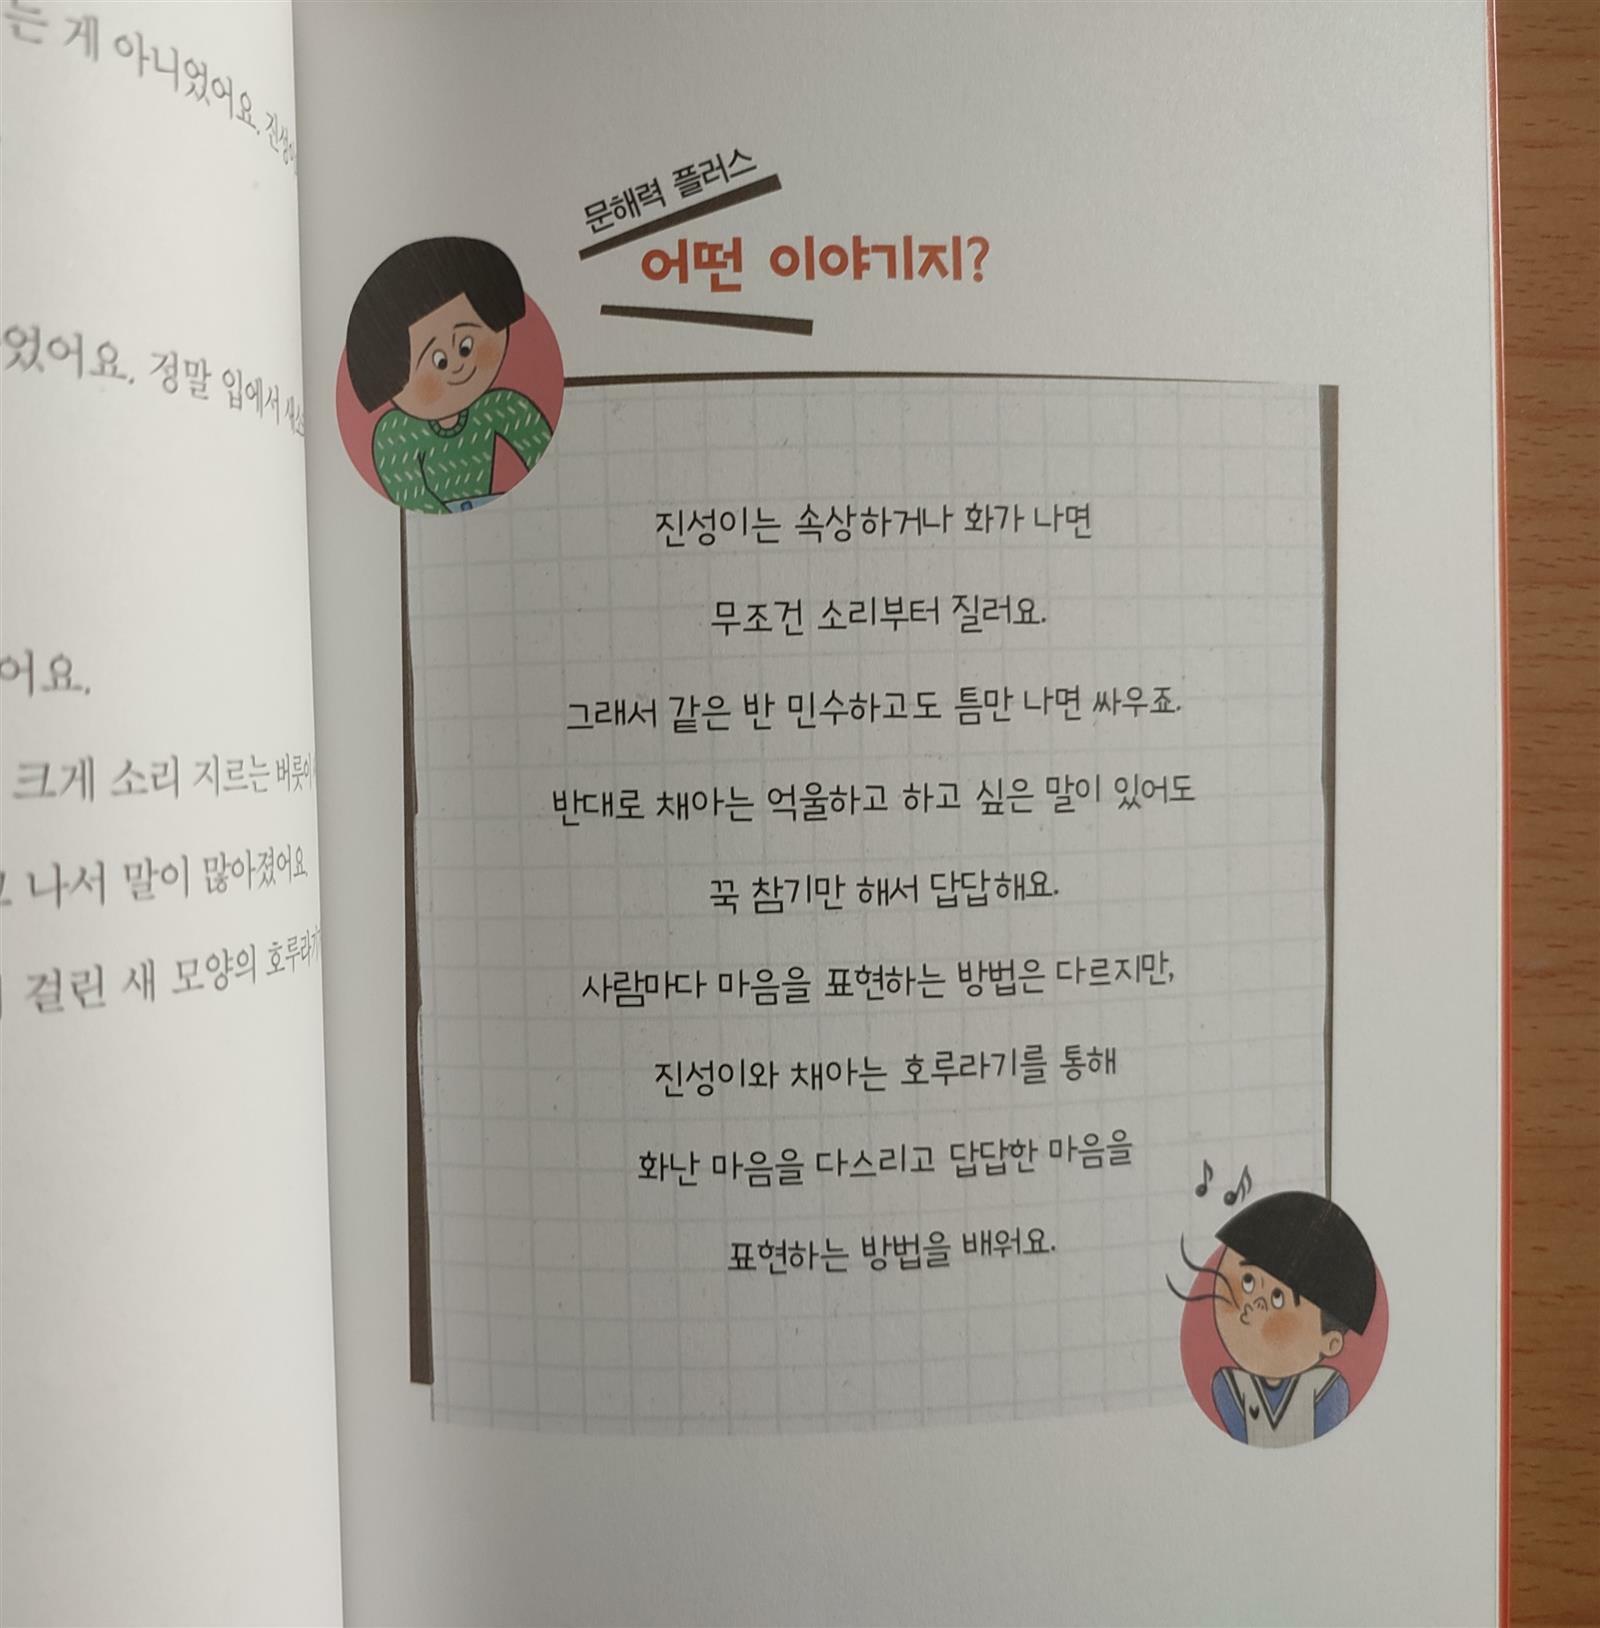 는 게 아니었어요. 진성이
었어요. 정말 입에서 새소
어요.
크게 소리 지르는 버릇이
나서 말이 많아졌어요
걸린 새 모양의 호루라기
문해력 플러스
어떤 이야기지?
진성이는 속상하거나 화가 나면
무조건 소리부터 질러요.
그래서 같은 반 민수하고도 틈만 나면 싸우죠.
반대로 채아는 억울하고 하고 싶은 말이 있어도
꾹 참기만 해서 답답해요.
사람마다 마음을 표현하는 방법은 다르지만,
진성이와 채아는 호루라기를 통해
화난 마음을 다스리고 답답한 마음을
표현하는 방법을 배워요.